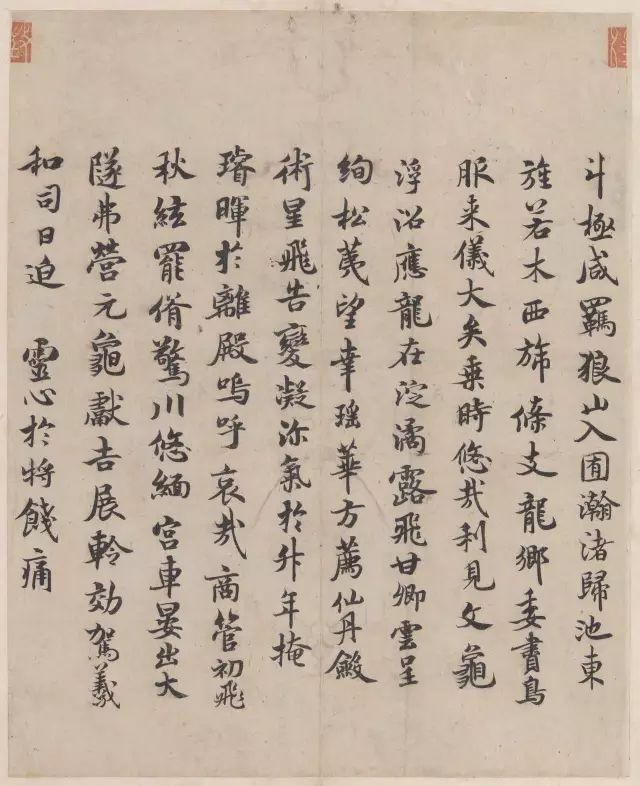 斗極咸羈狼山入囿瀚渚歸池東
旌若木西旆條支龍鄉委書鳥
服来儀大矣乘時悠哉利見文龜
浮沼應龍在淀濡露飛甘卿雲呈
絢松荑望幸瑶華方薦仙丹斂
術星飛告變凝沴氣於升年掩
璿暉於離殿嗚呼哀哉商管初飛
秋絃罷佾驚川悠緬宮車晏出大
隧弗營元龜獻吉展軨効駕羲
和司日迫 靈心於將餞痛